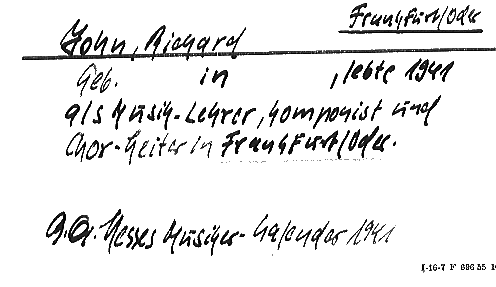 Frankfurt/Oder
John, Richard
Geb. in , lebte 1941
als Musik-Lehrer, Komponist und
Chor-Leiter in Frankfurt/Oder.
Hesses Musiker-Kalender 1941
I-16-7 F 696 55